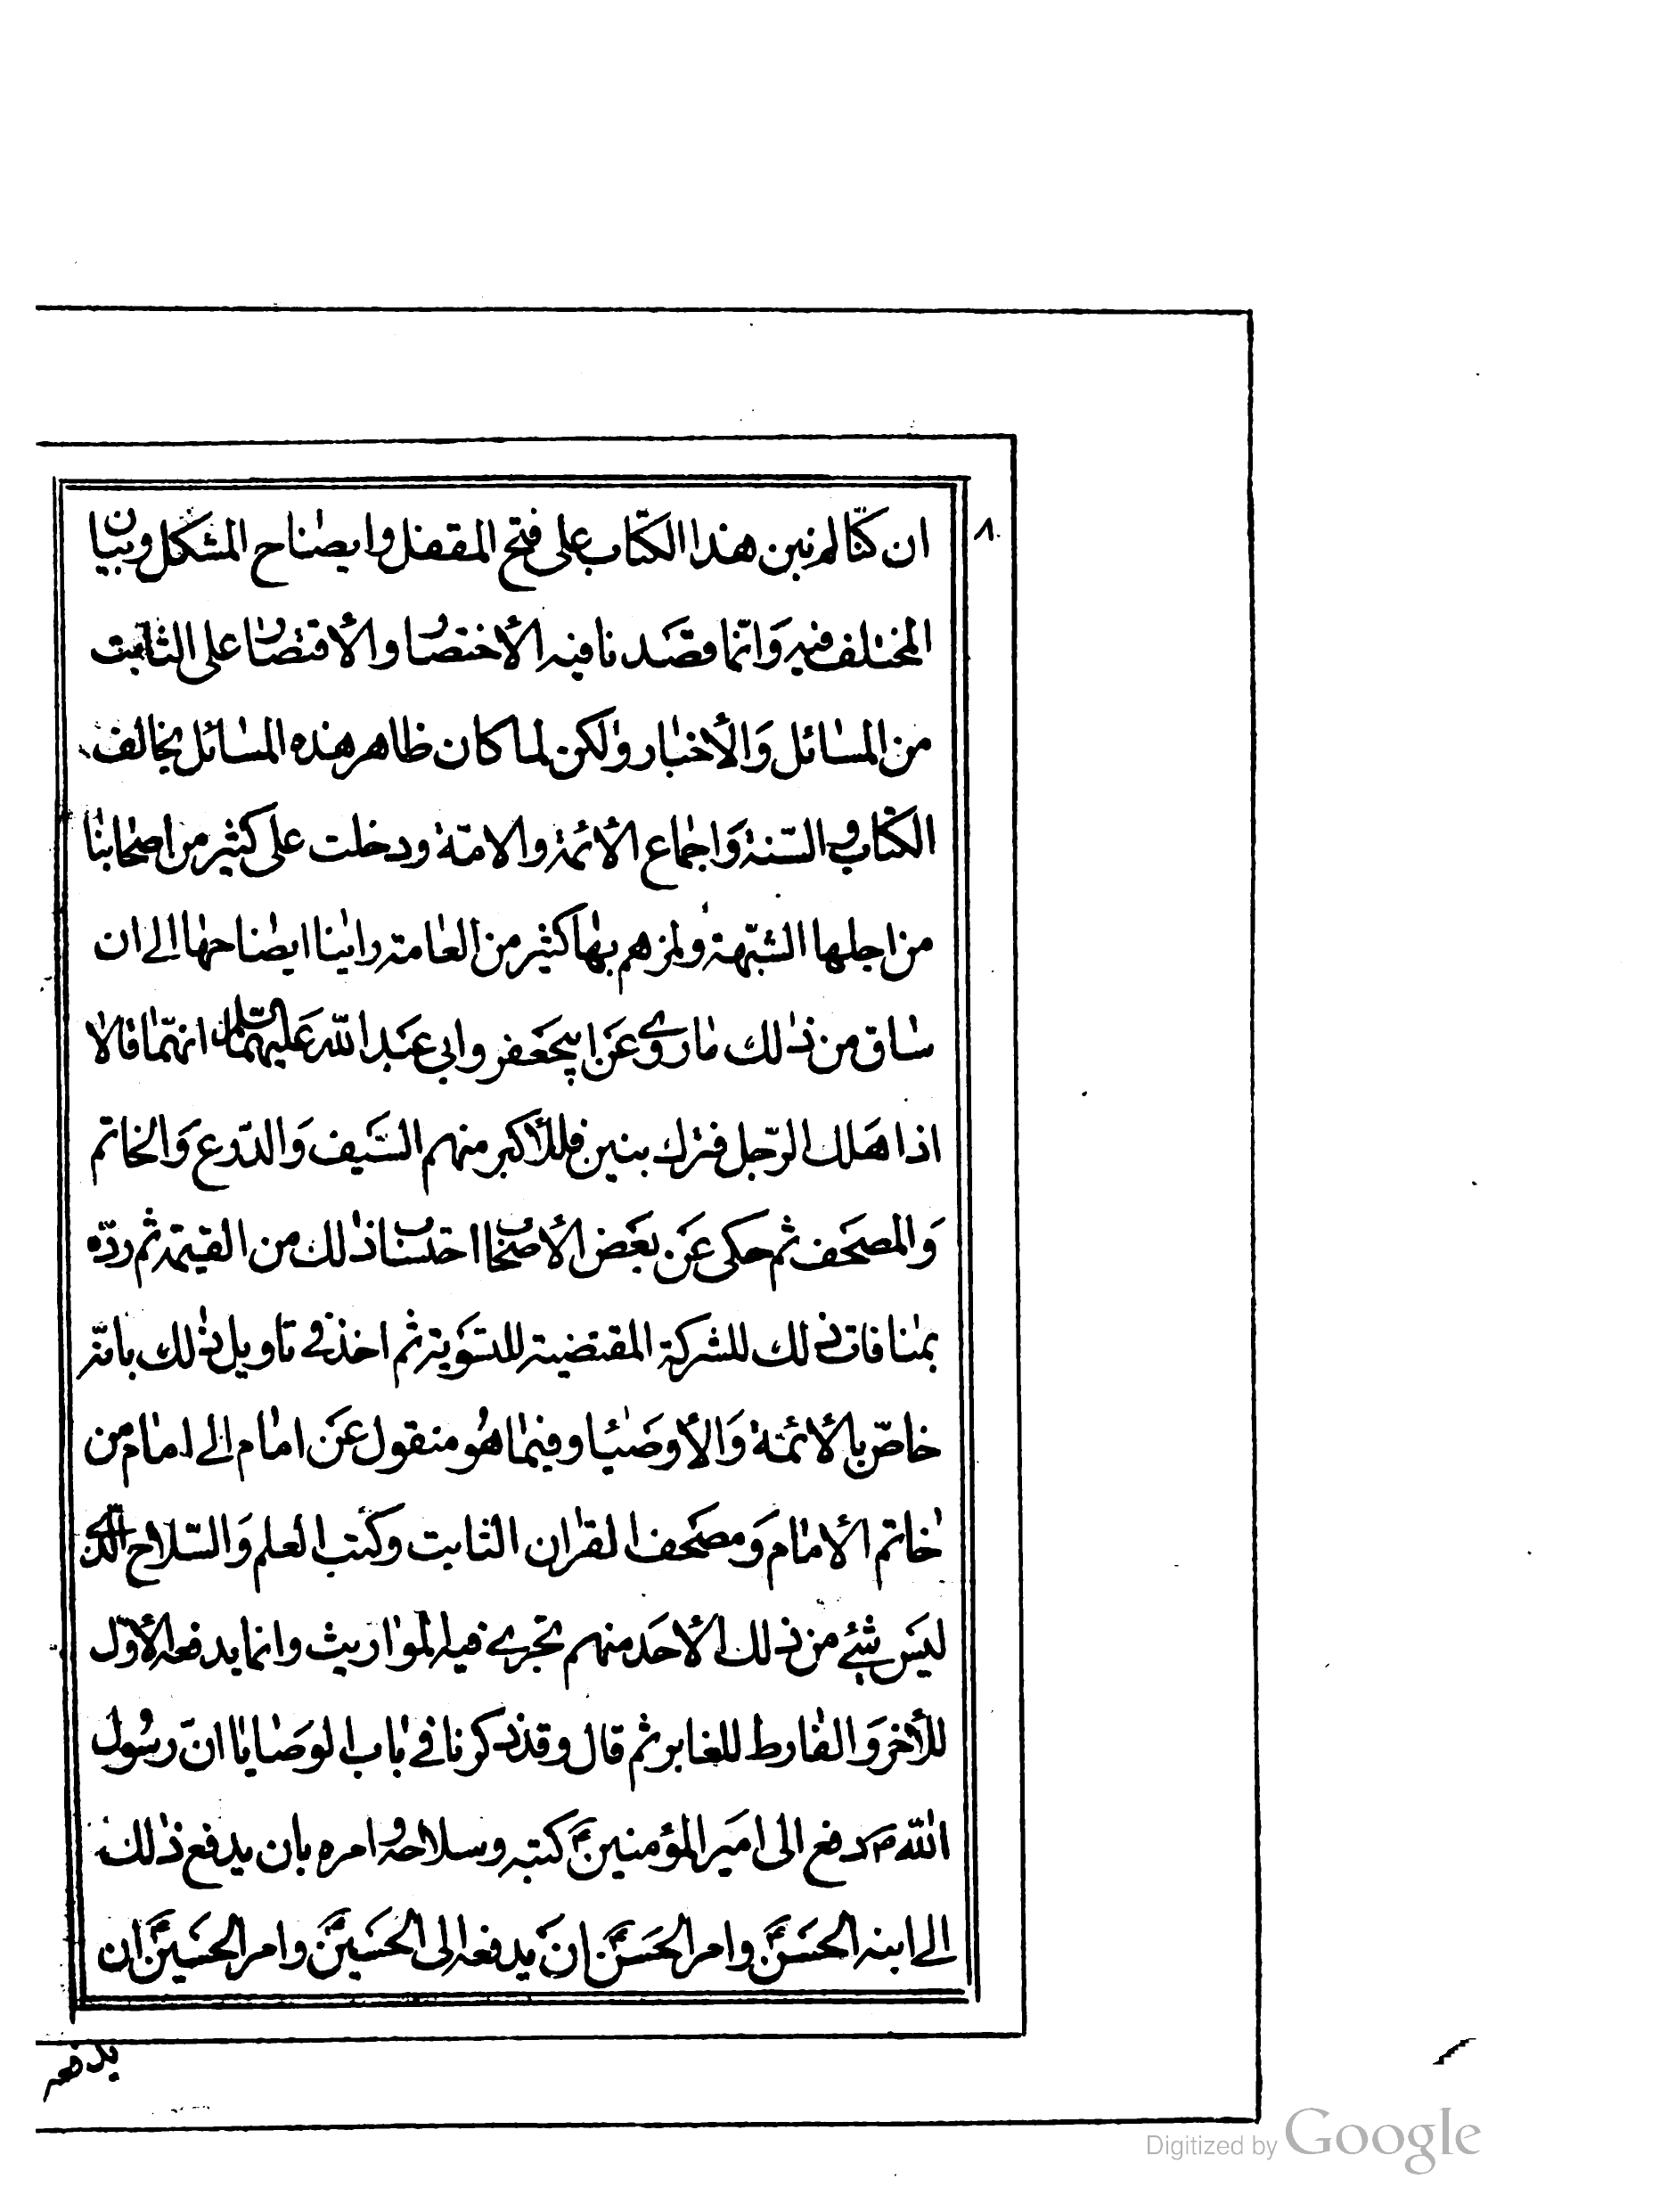 ٨٠
ان كنّا لم نبن هذا الكتاب على فتح المقفل وايضاح المشكل وبيان
المختلف فيه وَانّما قصَدنا فيه الأختصار والأقتصار على الثابت
من المسائل وَالأخبار ولكن لما كان ظاهر هذه المسائل يخالف
الكتاب والسّنة وَاجماع الأئمة والامّة ودخلت على كثير من اصحابنا
من اجلها الشبّهة ولزمهم بها كثير من العامة راينا ايضاحها الى ان
ساق من ذلك ما روى عَن ابيجَعفر وابي عَبد اللّه عَليهمَا السّلام انهّما قالا
اذا هَلك الرّجل فترك بنين فللأكبر منهم السَّيف وَالدّرع وَالخاتم
وَالمصحَف ثم حكى عَن بعَض الأصحاب احتساب ذلك من القيمة ثم ردّه
بمنافات ذلك للشركة المقتضية للتسَوية ثم اخذ في تاويل ذلك بانّه
خاصّ بالأئمّة وَالأوصَياء وفيما هُو منقول عَن امام الى امام من
خاتم الأمام وَمصَحف القران الثابت وكتب العلم وَالسّلاح الّذى
ليَس شئ من ذلك لأحَد منهم تجرى فيه المواريث وانما يدفعه الأوّل
للأخر وَالفارط للغابر ثم قال وقد ذكرنا في باب الوصَايا انّ رسُول
اللّه ص دفع الى اميَر المؤمنين ع كتبه وسلاحه وامره بان يدفع ذلك
الى ابنه الحسَن ع وامر الحسَن ع انَ يدفعه الى الحسَين ع وامر الحسَين ع ان
يدفعه
Digitized by Google